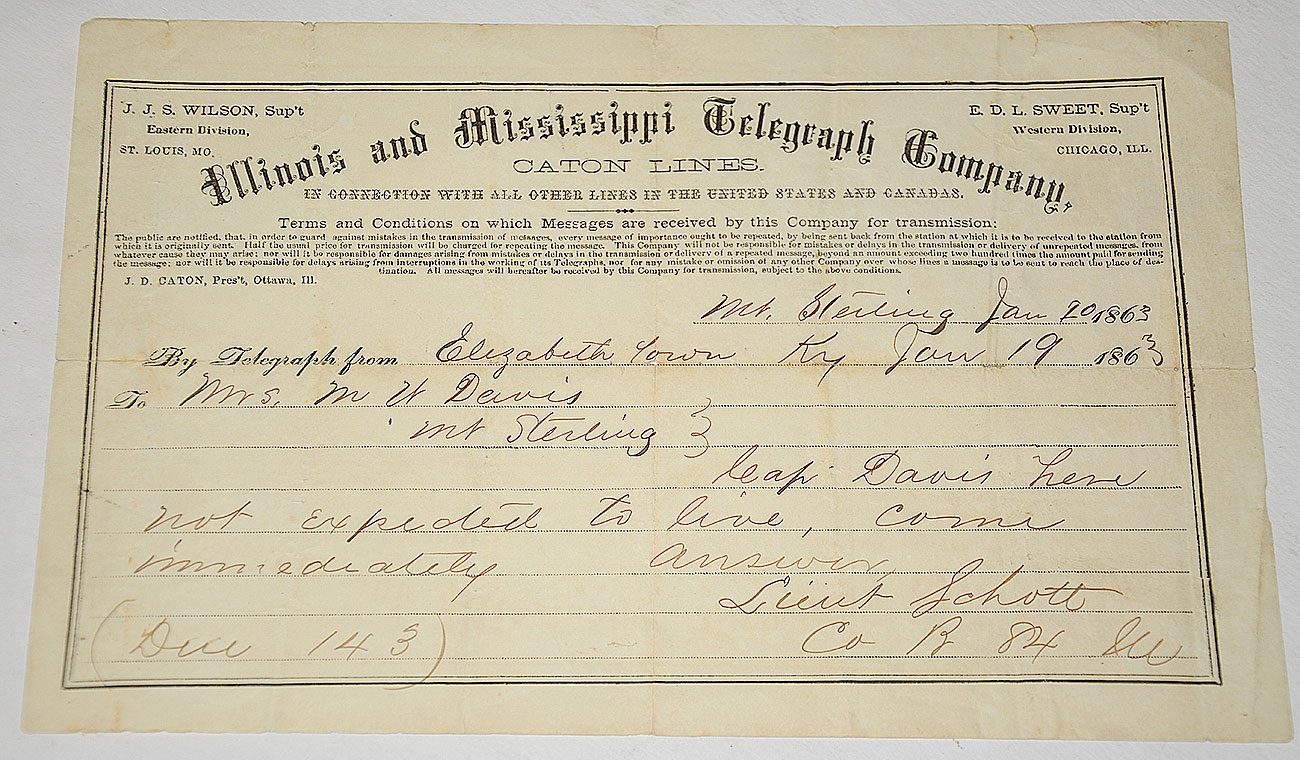 J. J. S. WILSON, Sup't
Eastern Division,
ST. LOUIS, MO.
E. D. L. SWEET, Sup't
Western Division,
CHICAGO, ILL.
Illinois and Mississippi Telegraph Company,
CATON LINES.
IN CONNECTION WITH ALL OTHER LINES IN THE UNITED STATES AND CANADAS.
Terms and Conditions on which Messages are received by this Company for transmission:
The public are notified, that, in order to guard against mistakes in the transmission of messages, every message of importance ought to be repeated, by being sent back from the station at which it is to be received to the station from
which it is originally sent. Half the usual price for transmission will be charged for repeating the message. This Company will not be responsible for mistakes or delays in the transmission or delivery of unrepeated messages, from
whatever cause they may arise; nor will it be responsible for damages arising from mistakes or delays in the transmission or delivery of a repeated message, beyond an amount exceeding two hundred times the amount paid for sending
the message; nor will it be responsible for delays arising from interruptions in the working of its Telegraphs, nor for any mistake or omission of any other Company over whose lines a message is to be sent to reach the place of des-
tination. All messages will hereafter be received by this Company for transmission, subject to the above conditions.
J. D. CATON, Pres't, Ottawa, Ill.
Mt. Sterling Jan 20 1863
By Telegraph from Elizabeth town Ky Jan 19 1863
To Mrs. M W Davis
Mt Sterling
Cap Davis here
not expected to live, come
immediately answer
Lieut Schott
(Due 143) Co B 84 Ill